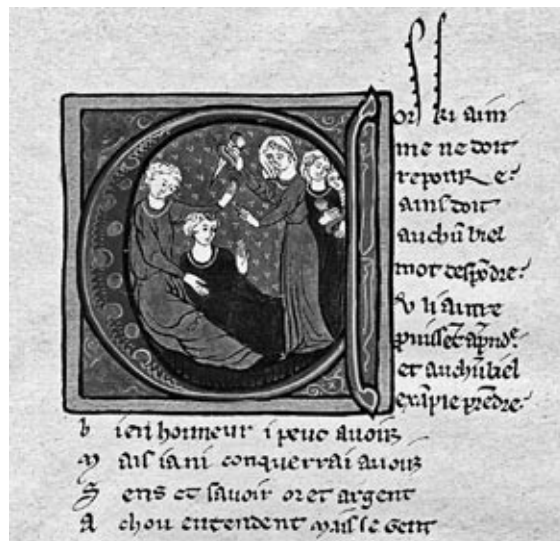 or ki aim
me ne doit
repourre
ains doit
auchū biel
mot despōdre
v li autre
puissēt
et auchū biel
exāple prēdre
b ien honneur i peut auoir
M ais ia ni conquerrai auoir
S ens et sauoir or et argent
A chou entendent mais le gent